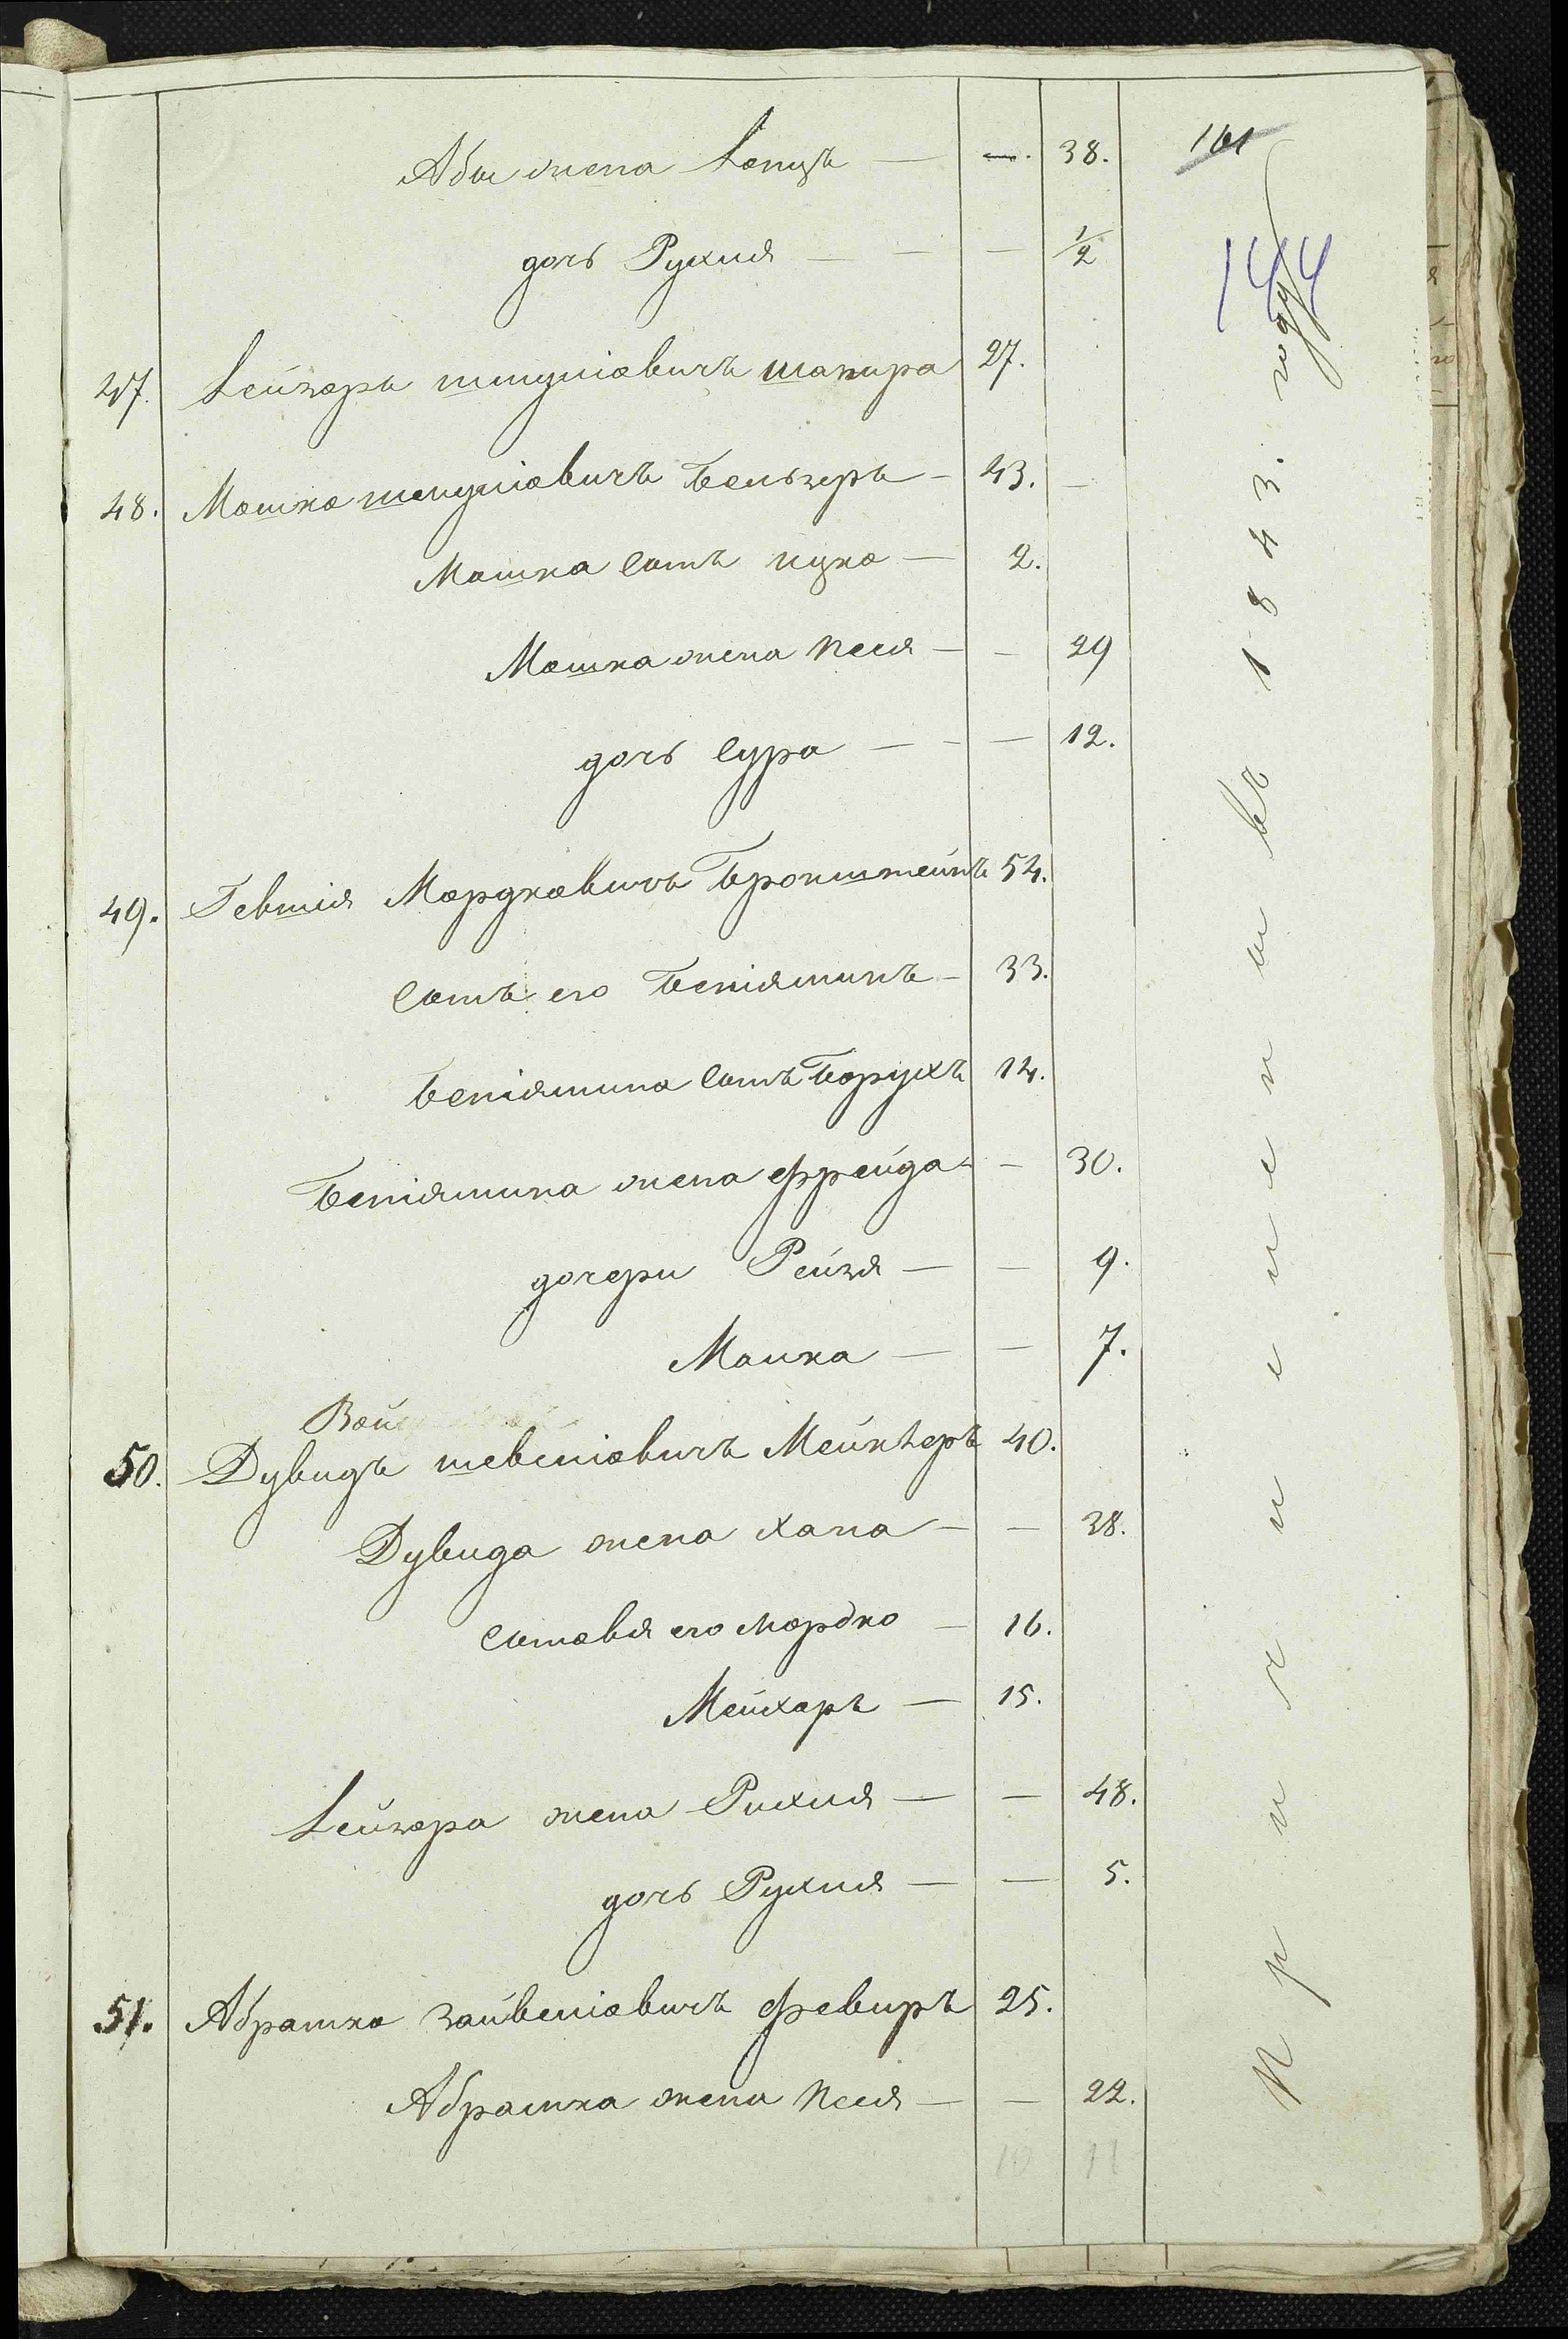 Абы жена Ленцъ — — 38. 161
дочь Рухля — — — 1/2
144
47. Лейзоръ шмулiовичъ шапира 27.
48. Мошко шмулiовичъ Бельзеръ — 43. —
Мошка Сынъ ицко — 2.
Мошка жена Песя — — 29
дочь Сура — — — 12.
49. Гевшiя Мордковичъ Бронштейнъ 54.
Сынъ его Бенiяминъ — 33.
Бенiямина Сынъ Борухъ 14.
Бенiямина жена Фрейда — — 30.
дочери Рейзя — — 9.
Малка — — 7.
Вой
50. Дувидъ шевелiовичъ Мейхеръ 40.
Дувида жена Хана — — 38.
Сыновья его Мордко — 16.
Мейхаръ — 15.
Лейзора жена Рихля — — 48.
дочь Рухля — — 5.
51. Абрамко зайвелiовичъ Февиръ 25.
Абрамка жена Песя — — 22.
10 11
Причисленны въ 1843. году